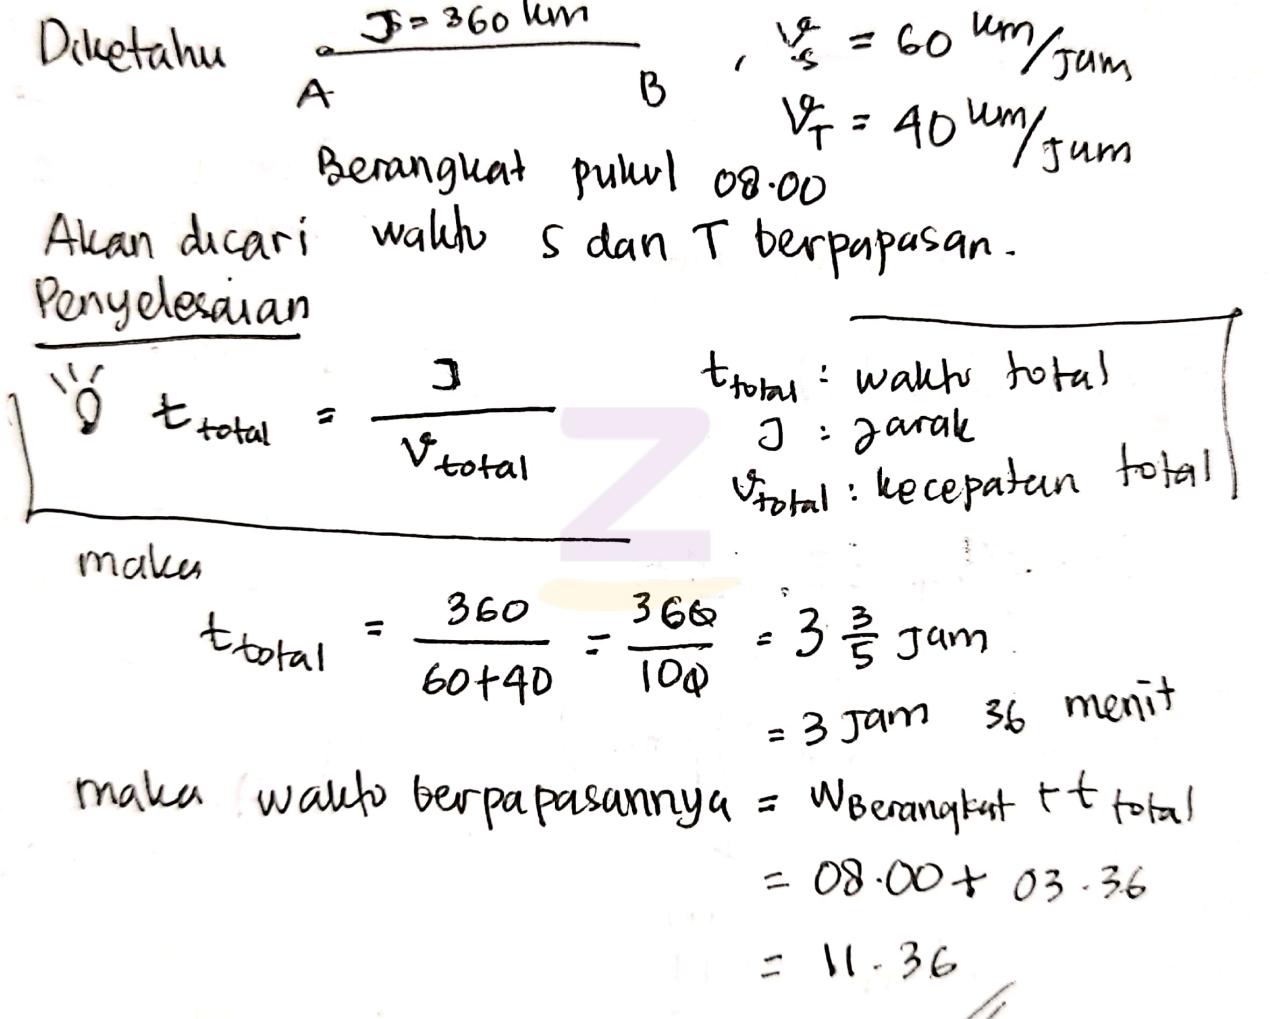 Diketahu J = 360 km , Vs = 60 km/jam
A B VT = 40 km/jam
Berangkat pukul 08.00
Akan dicari waktu S dan T berpapasan.
Penyelesaian
t total = J / V total
t total : waktu total
J : jarak
V total : kecepatan total
maka
t total = 360 / 60+40 = 360 / 100 = 3 3/5 jam
= 3 jam 36 menit
maka waktu berpapasannya = W Berangkat + t total
= 08.00 + 03.36
= 11.36
Z